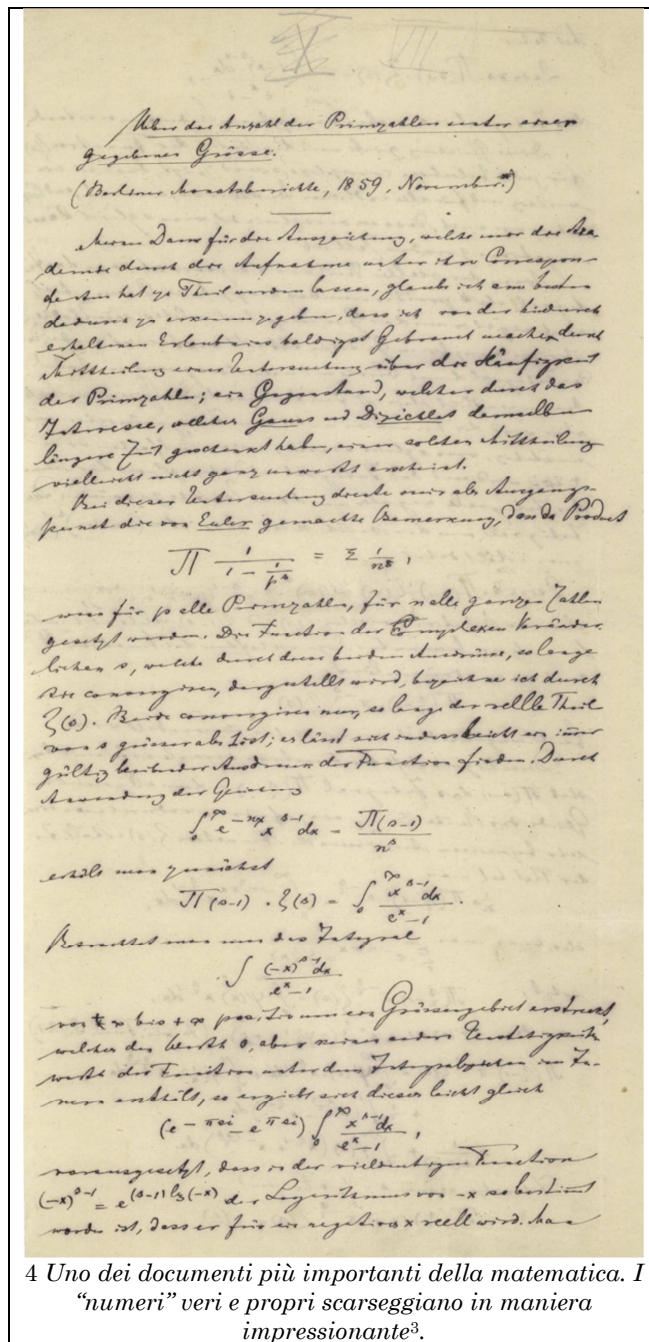 Ueber die Anzahl der Primzahlen unter einer
gegebenen Grösse.
(Berliner Monatsberichte, 1859, November.)
Meinen Dank für die Auszeichnung, welche mir die Aka-
demie durch die Aufnahme unter ihre Correspon-
denten hat zu Theil werden lassen, glaube ich am besten
dadurch zu erkennen zu geben, dass ich von der hiedurch
erhaltenen Erlaubniss baldigst Gebrauch mache durch
Mittheilung einer Untersuchung über die Häufigkeit
der Primzahlen; ein Gegenstand, welcher durch das
Interesse, welches Gauss und Dirichlet demselben
längere Zeit geschenkt haben, einer solchen Mittheilung
vielleicht nicht ganz unwerth erscheint.
Bei dieser Untersuchung diente mir als Ausgangs-
punkt die von Euler gemachte Bemerkung, dass das Product
∏ 1/(1 − 1/p^s) = Σ 1/n^s,
wenn für p alle Primzahlen, für n alle ganzen Zahlen
gesetzt werden. Die Function der complexen Veränder-
lichen s, welche durch diese beiden Ausdrücke, so lange
sie convergiren, dargestellt wird, bezeichne ich durch
ζ(s). Beide convergiren nur, so lange der reelle Theil
von s grösser als 1 ist; es lässt sich indess leicht ein immer
gültig bleibender Ausdruck der Function finden. Durch
Anwendung der Gleichung
∫₀^∞ e^(−nx) x^(s−1) dx = Π(s−1)/n^s
erhält man zunächst
Π(s−1) . ζ(s) = ∫₀^∞ x^(s−1) dx/(e^x − 1).
Betrachtet man nun das Integral
∫ (−x)^(s−1) dx/(e^x − 1)
von +∞ bis +∞ positiv um ein Grössengebiet erstreckt,
welches den Werth 0, aber keinen andern Unstetigkeits-
werth der Function unter dem Integralzeichen im In-
nern enthält, so ergiebt sich dieses leicht gleich
(e^(−πsi) − e^(πsi)) ∫₀^∞ x^(s−1) dx/(e^x − 1),
vorausgesetzt, dass in der vieldeutigen Function
(−x)^(s−1) = e^((s−1) lg(−x)) der Logarithmus von −x so bestimmt
worden ist, dass er für ein negatives x reell wird. Man
4 Uno dei documenti più importanti della matematica. I
“numeri” veri e propri scarseggiano in maniera
impressionante³.